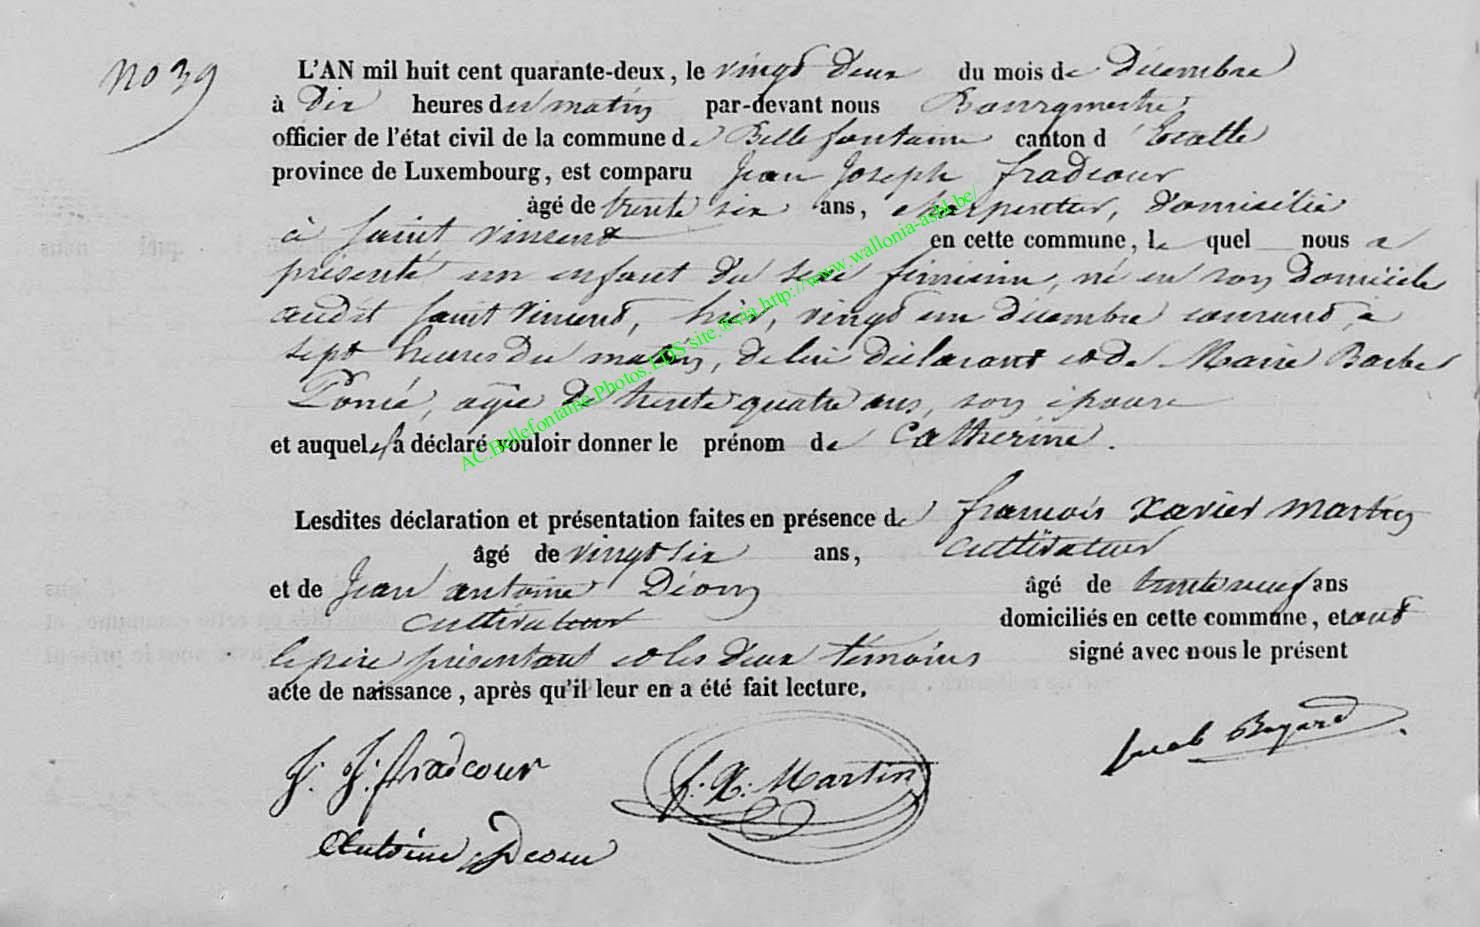 No 39
L'AN mil huit cent quarante-deux, le vingt deux du mois de Décembre
à Dix heures du matin par-devant nous Bourgmestre,
officier de l'état civil de la commune de Bellefontaine canton d'Etalle
province de Luxembourg, est comparu Jean Joseph fradcour
âgé de trente six ans, charpentier, domicilié
à Saint Vincent en cette commune, le quel nous a
présenté un enfant du sexe féminin, né en son Domicile
audit Saint Vincent, hier, vingt un décembre courant, à
sept heures du matin, de lui déclarant et de Marie Barbe
Poncé, agée de trente quatre ans, son épouse
et auquel il a déclaré vouloir donner le prénom de Catherine.
Lesdites déclaration et présentation faites en présence de françois Xavier Martin
âgé de vingt six ans, cultivateur
et de Jean antoine Déom âgé de trente neuf ans
cultivateur domiciliés en cette commune, et ont
le père présentant et les deux témoins signé avec nous le présent
acte de naissance, après qu'il leur en a été fait lecture.
J. J. fradcour
f. X. Martin
Jacob Bayard
Antoine Deom
AC.Bellefontaine.Photos.LDS site.®via http://www.wallonia-asbl.be/